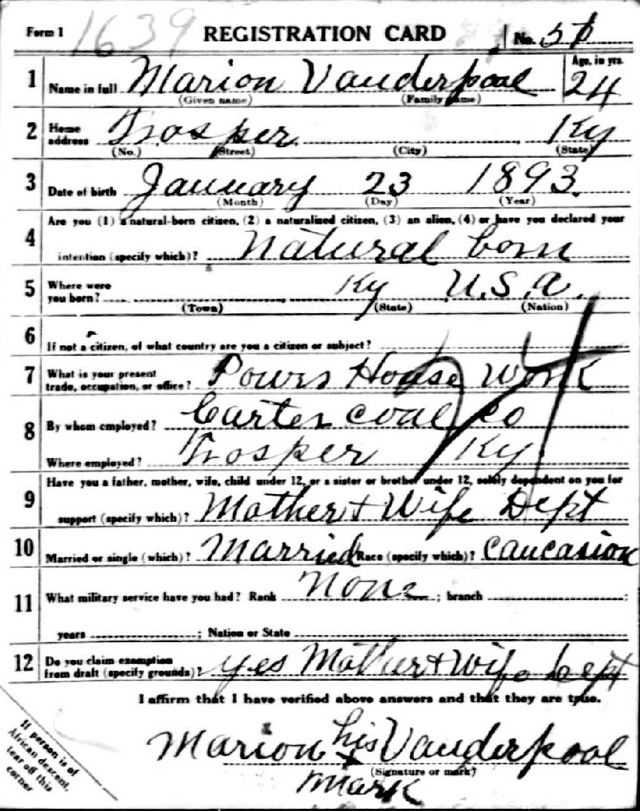 Form 1 1639 REGISTRATION CARD No. 51
1 Name in full Marion Vanderpool Age, in yrs. 24
(Given name) (Family name)
2 Home address Trosper Ky
(No.) (Street) (City) (State)
3 Date of birth January 23 1893
(Month) (Day) (Year)
4 Are you (1) a natural-born citizen, (2) a naturalized citizen, (3) an alien, (4) or have you declared your
intention (specify which)? Natural born
5 Where were you born? Ky U.S.A.
(Town) (State) (Nation)
6 If not a citizen, of what country are you a citizen or subject?
7 What is your present trade, occupation, or office? Powrs House Work
8 By whom employed? Carter Coal Co
Where employed? Trosper Ky
9 Have you a father, mother, wife, child under 12, or a sister or brother under 12, solely dependent on you for
support (specify which)? Mother + Wife Dept
10 Married or single (which)? Married Race (specify which)? Caucasion
11 What military service have you had? Rank None ; branch ;
years ; Nation or State
12 Do you claim exemption from draft (specify grounds)? yes Mother + Wife Dept
I affirm that I have verified above answers and that they are true.
Marion his Vanderpool
x
(Signature or mark)
mark
If person is of
African descent,
tear off this
corner